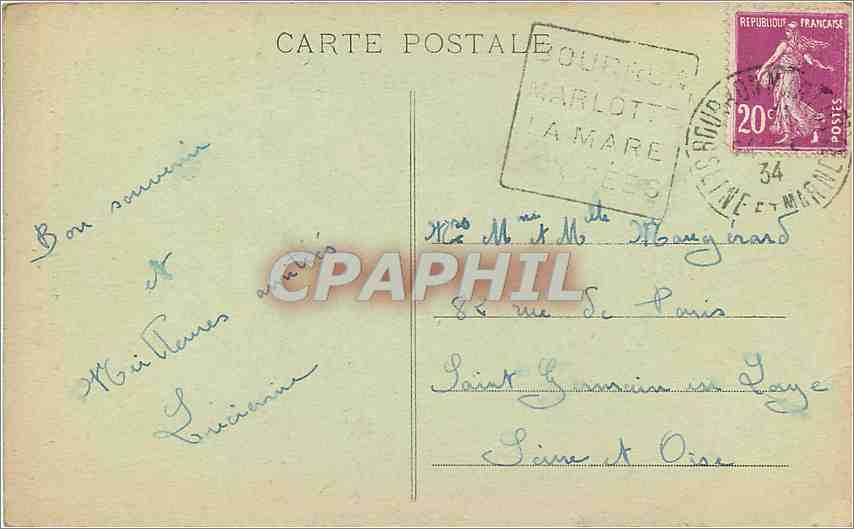 CARTE POSTALE
BOURRON
MARLOTTE
LA MARE
AUX FEES
REPUBLIQUE FRANCAISE
20c
POSTES
BOURRON M
34
SEINE ET MARNE
Bon souvenir
et
Meilleures amitiés
Lucienne
Mrs Mme et Mlle Maugérard
82 rue de Paris
Saint Germain en Laye
Seine et Oise
CPAPHIL